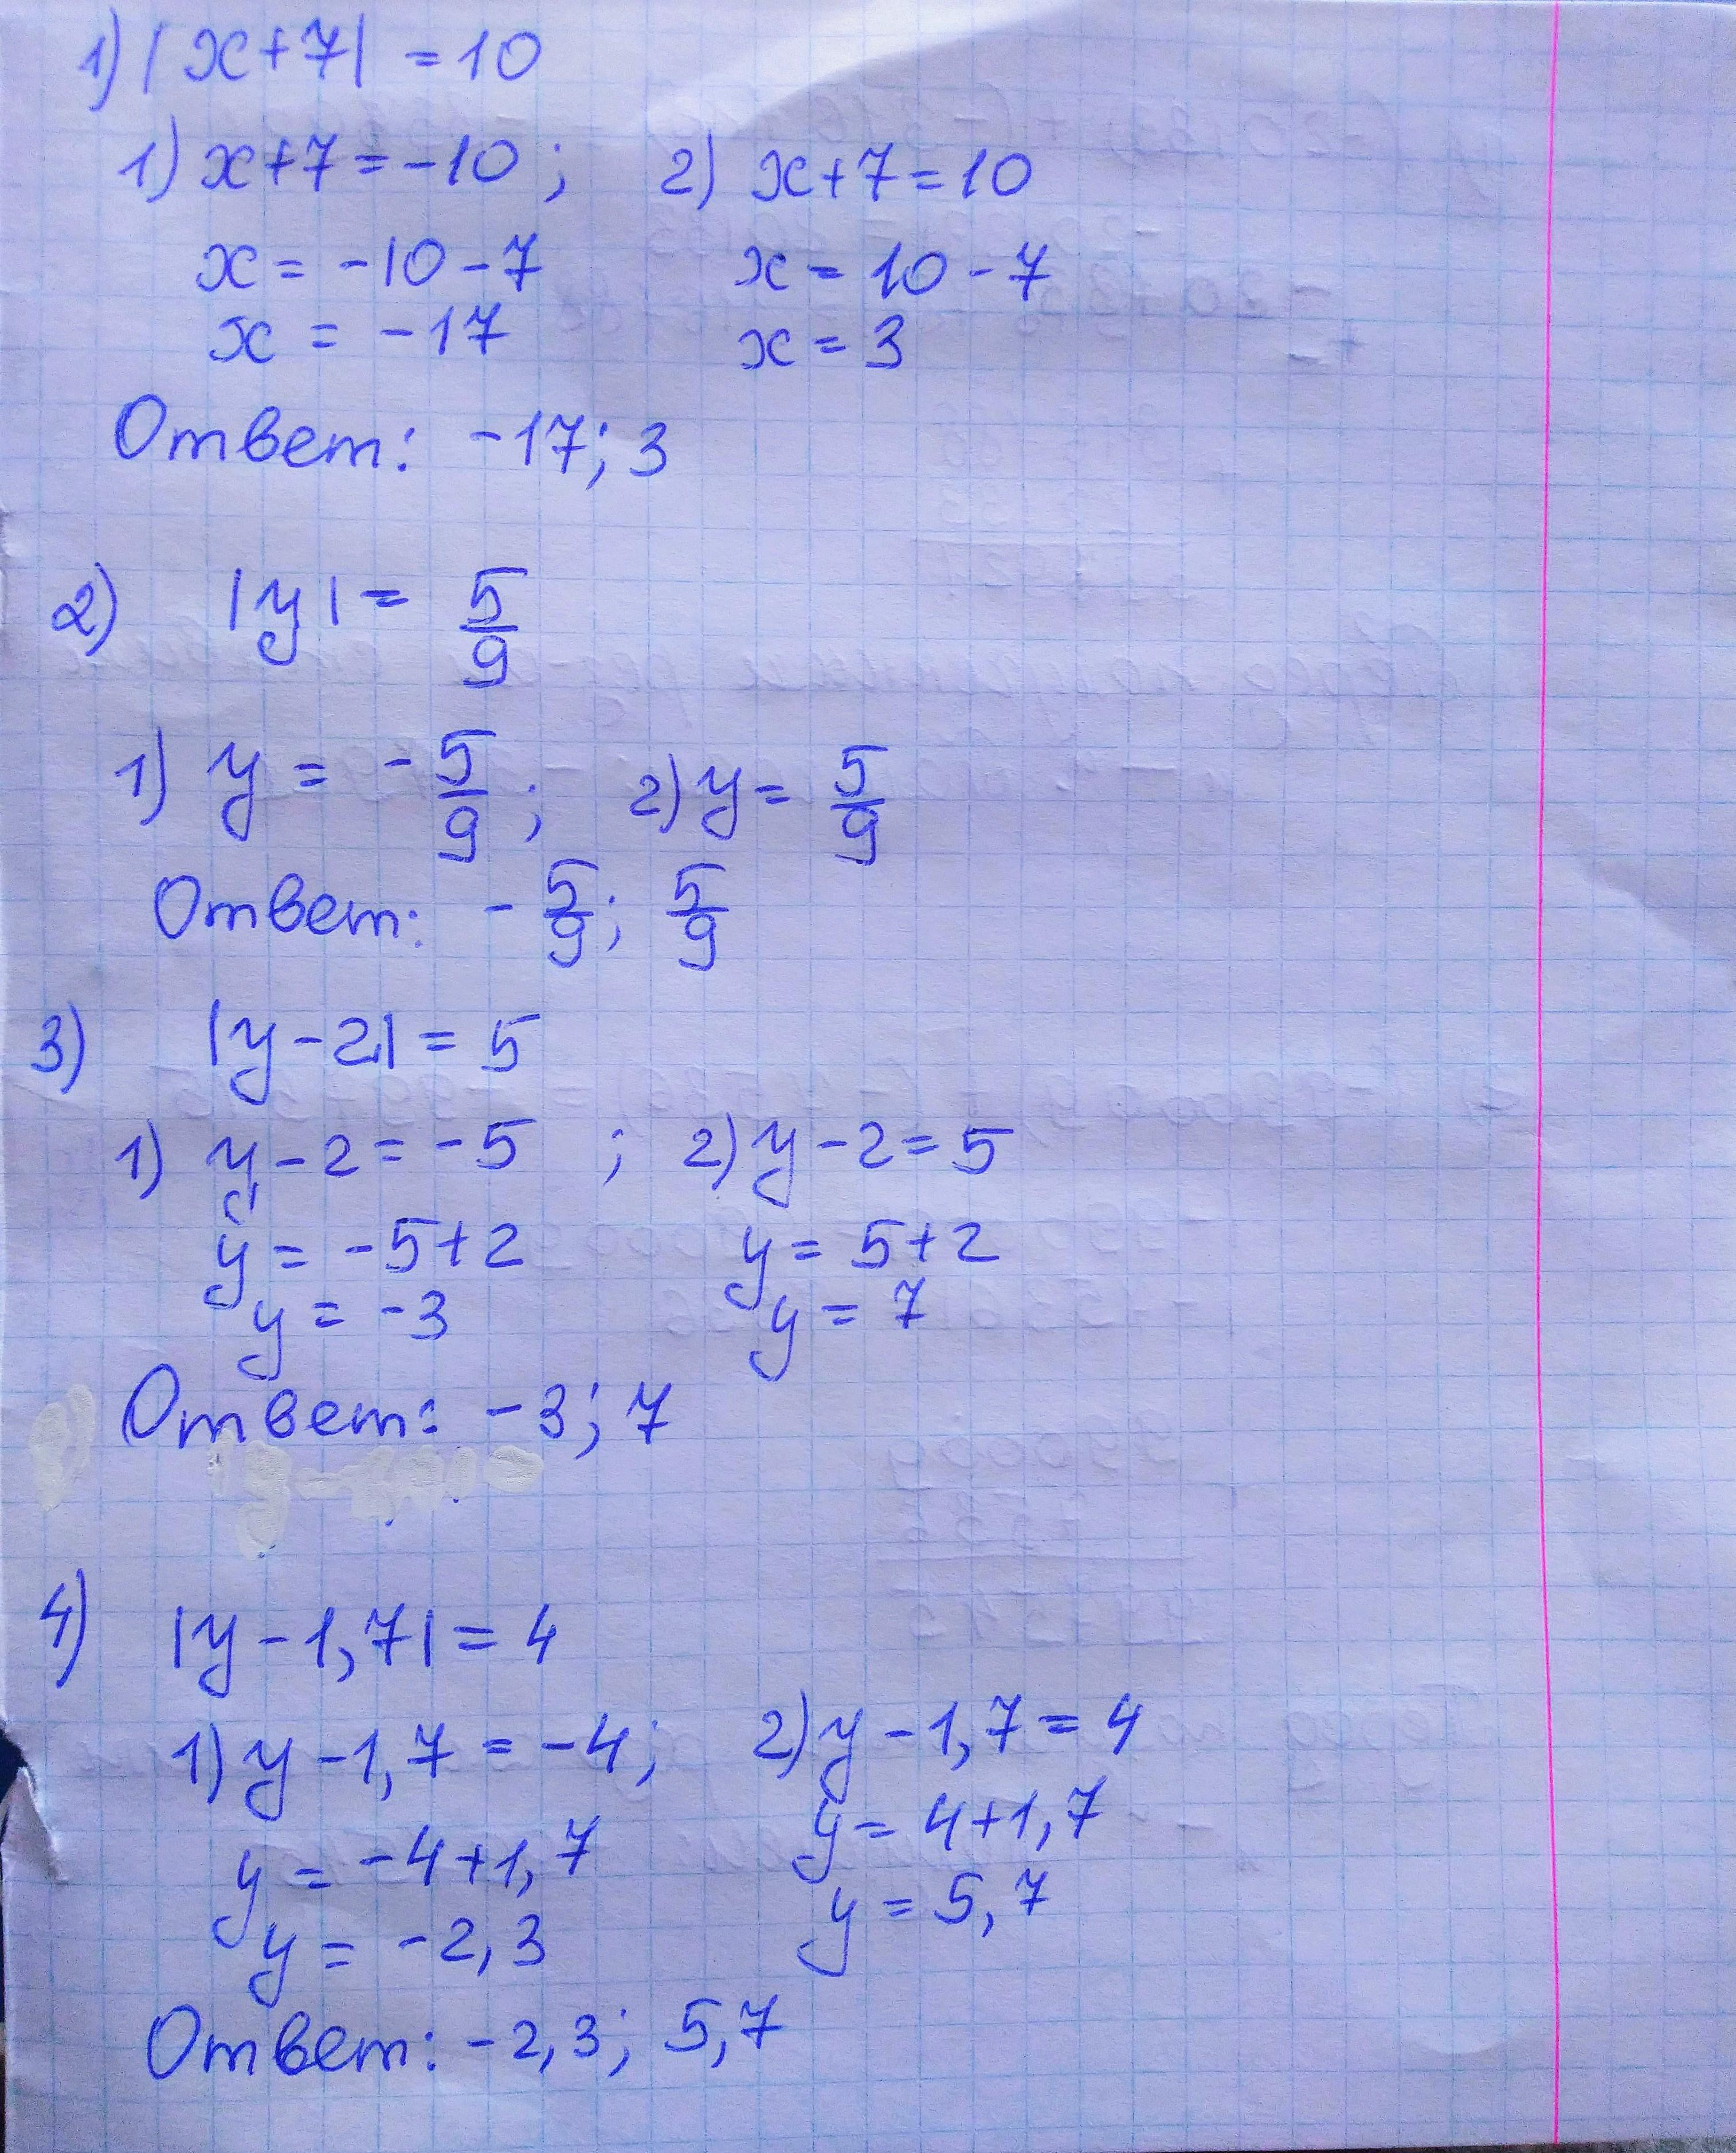 1) |x+7| = 10
1) x+7 = -10 ; 2) x+7 = 10
x = -10 - 7 x = 10 - 7
x = -17 x = 3
Ответ: -17; 3
2) |y| = 5/9
1) y = -5/9 ; 2) y = 5/9
Ответ: -5/9; 5/9
3) |y-2| = 5
1) y-2 = -5 ; 2) y-2 = 5
y = -5+2 y = 5+2
y = -3 y = 7
Ответ: -3; 7
4) |y-1,7| = 4
1) y-1,7 = -4; 2) y-1,7 = 4
y = -4+1,7 y = 4+1,7
y = -2,3 y = 5,7
Ответ: -2,3; 5,7